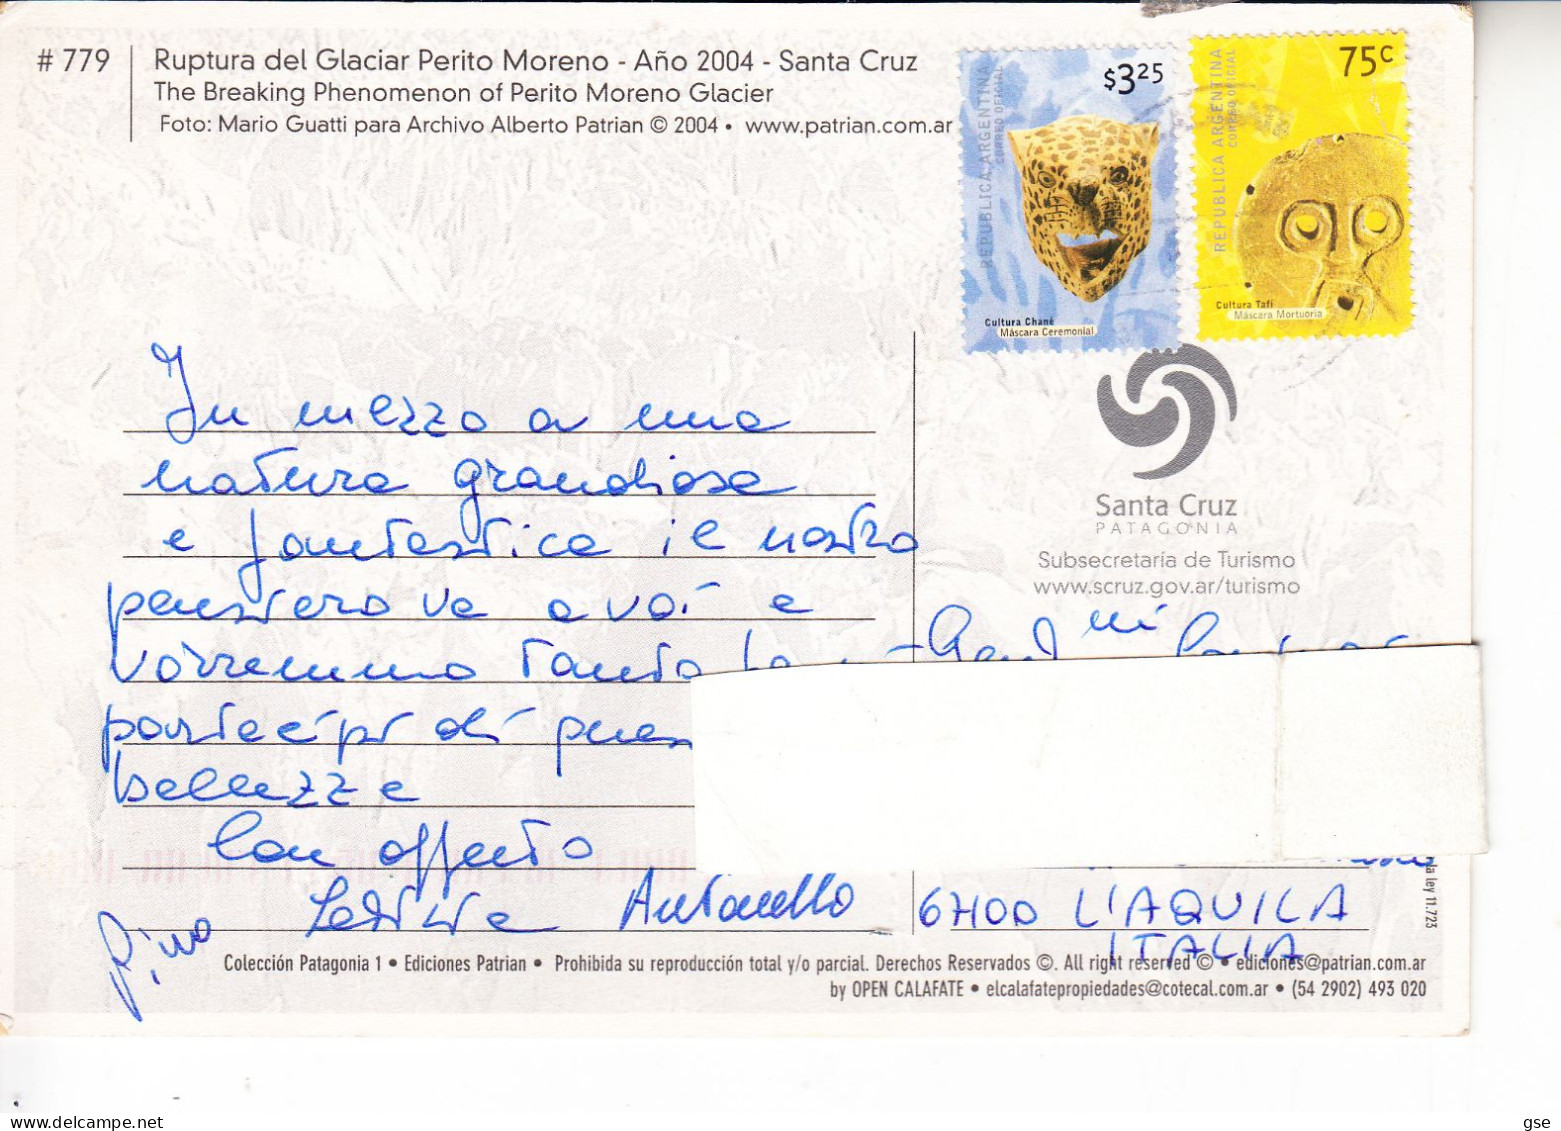 # 779
Ruptura del Glaciar Perito Moreno - Año 2004 - Santa Cruz
The Breaking Phenomenon of Perito Moreno Glacier
Foto: Mario Guatti para Archivo Alberto Patrian © 2004 • www.patrian.com.ar
$3.25
REPUBLICA ARGENTINA
CORREO OFICIAL
Cultura Chané
Máscara Ceremonial
75c
REPUBLICA ARGENTINA
CORREO OFICIAL
Cultura Tafí
Máscara Mortuoria
Santa Cruz
PATAGONIA
Subsecretaría de Turismo
www.scruz.gov.ar/turismo
In mezzo a una
natura grandiosa
e fantastica il nostro
pensiero va a voi e
vorremmo tanto
partecipi di
bellezze
Con affetto
Letizia Antonello
Pino
67100 L'AQUILA
ITALIA
da ley 11.723
Colección Patagonia 1 • Ediciones Patrian • Prohibida su reproducción total y/o parcial. Derechos Reservados ©. All right reserved © • ediciones@patrian.com.ar
by OPEN CALAFATE • elcalafatepropiedades@cotecal.com.ar • (54 2902) 493 020
gse
www.delcampe.net